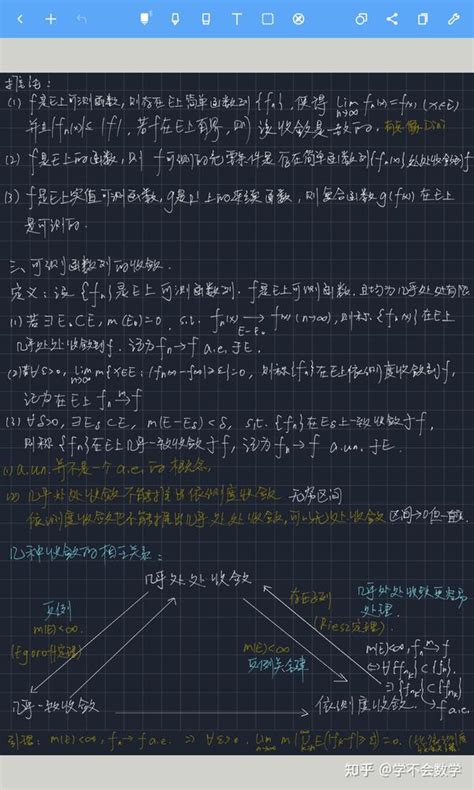 推论:
(1) f是E上可测函数,则存在E上简单函数列{fₙ},使得 lim_{n→∞} fₙ(x)=f(x) (x∈E)
并且|fₙ(x)|≤|f|,若f在E上有界,则该收敛是一致的.
(2) f是E上的函数,则 f可测的充要条件是存在简单函数列{fₙ(x)}处处收敛到f
(3) f是E上实值可测函数,g是R上的连续函数,则复合函数g(f(x))在E上
是可测的.
三、可测函数列的收敛.
定义:设{fₙ}是E上可测函数列.f是E上可测函数.且均为几乎处处有限
(1) 若∃E₀⊂E, m(E₀)=0. s.t. fₙ(x) →_{E-E₀} f(x) (n→∞),则称{fₙ(x)}在E上
几乎处处收敛到f.记为fₙ→f a.e.于E.
(2) 若∀ε>0, lim_{n→∞} m{x∈E:|fₙ(x)-f(x)|≥ε}=0, 则称{fₙ}在E上依测度收敛到f,
记为在E上fₙ→ᵐf
(3) ∀δ>0,∃E_δ⊂E, m(E-E_δ)<δ, s.t. {fₙ}在E_δ上一致收敛于f,
则称{fₙ}在E上几乎一致收敛于f,记为fₙ→f a.un.于E.
(1) a.un.并不是一个a.e.的概念.
(2) 几乎处处收敛不能推出依测度收敛 无穷区间
依测度收敛也不能推出几乎处处收敛,可以无处收敛
几种收敛的相互关系:
几乎处处收敛
反例
m(E)<∞.
(Egoroff定理)
存在子列
(Riesz定理)
几乎处处收敛更容易
处理.
m(E)<∞
m(E)<∞, fₙ→ᵐf
⇔ ∀{f_{n_k}}⊂{fₙ}
→f a.e.
几乎一致收敛
依测度收敛
引理: m(E)<∞, fₙ→f a.e. ⇒ ∀ε>0.
知乎 @学不会数学